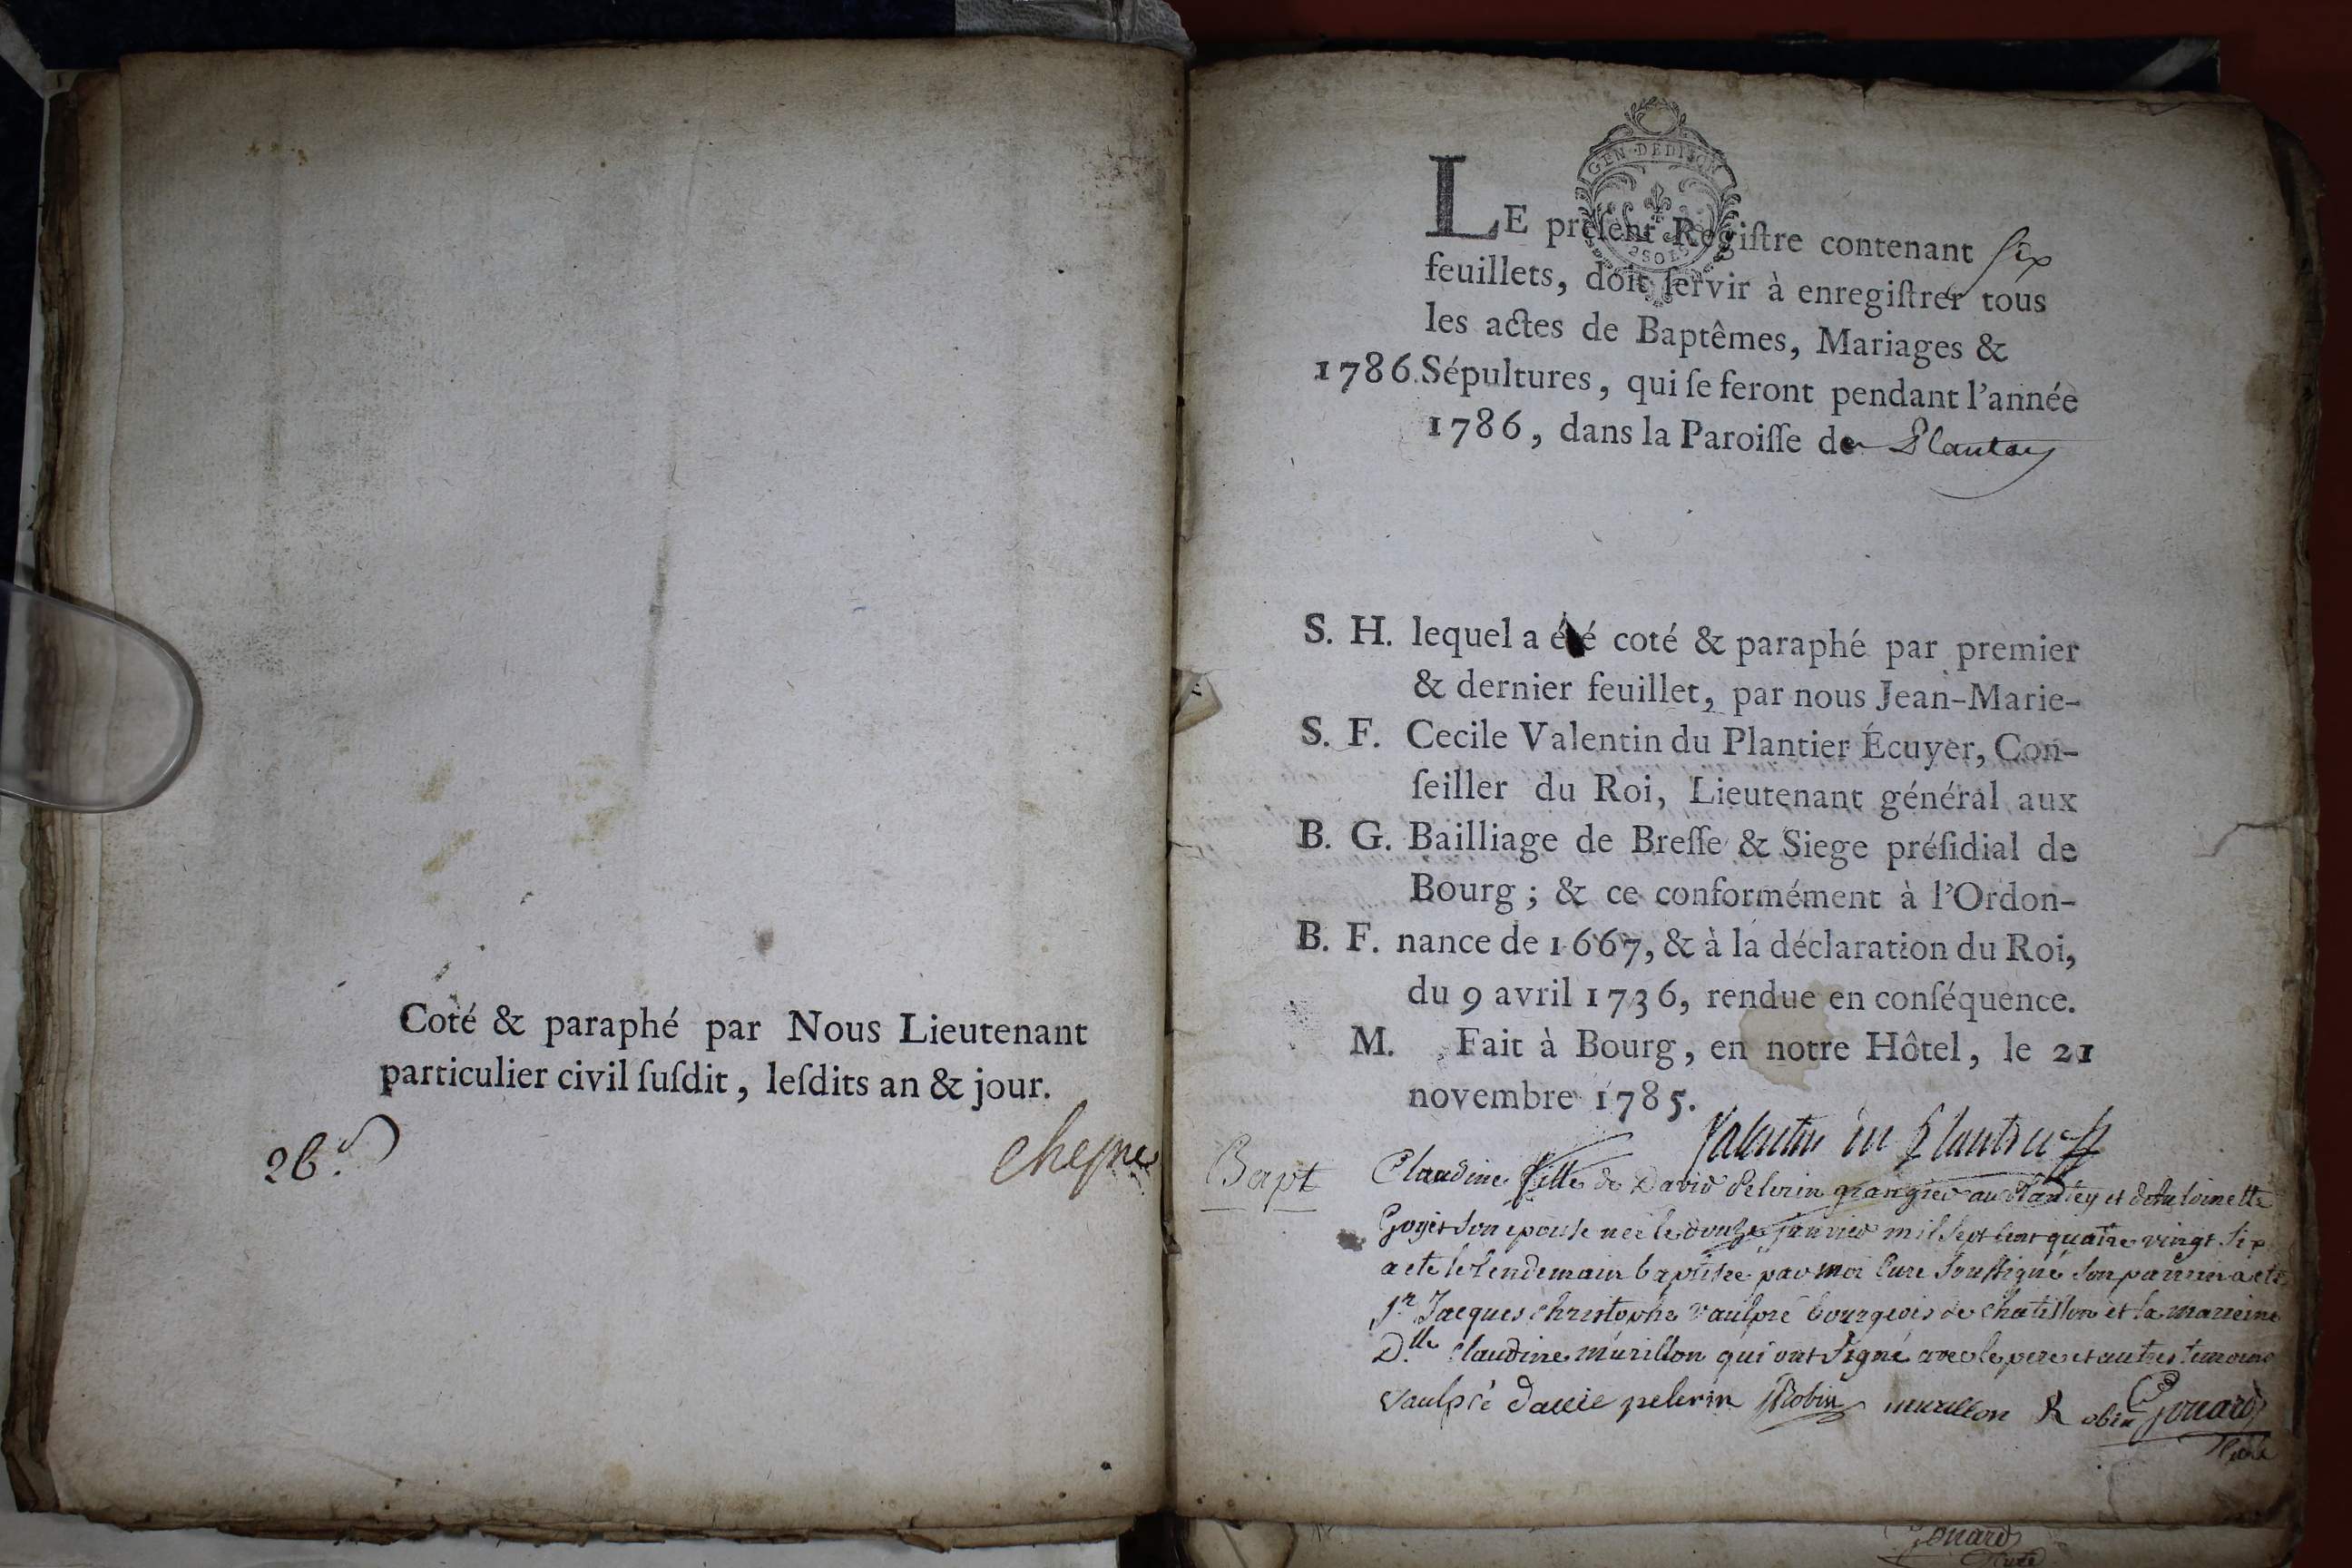 Coté & paraphé par Nous Lieutenant
particulier civil ſuſdit, leſdits an & jour.
GEN·DE DIJON
LE préſent Regiſtre contenant ſix
feuillets, doit ſervir à enregiſtrer tous
les actes de Baptêmes, Mariages &
1786. Sépultures, qui ſe feront pendant l'année
1786, dans la Paroiſſe de Plantay
S. H. lequel a été coté & paraphé par premier
& dernier feuillet, par nous Jean-Marie-
S. F. Cecile Valentin du Plantier Écuyer, Con-
ſeiller du Roi, Lieutenant général aux
B. G. Bailliage de Breſſe & Siege préſidial de
Bourg ; & ce conformément à l'Ordon-
B. F. nance de 1667, & à la déclaration du Roi,
du 9 avril 1736, rendue en conſéquence.
M. Fait à Bourg, en notre Hôtel, le 21
novembre 1785.
Valentin du Plantier
Bapt Claudine fille de David Pelerin granger au Plantey et d'Antoinette
Goyet son epouse née le douze janvier mil sept cent quatre vingt six
a ete le lendemain baptisée par moi Curé soussigné son parrain a ete
Sr Jacques christophe vaulpré bourgeois de Chatillon et la marreine
Dlle Claudine murillon qui ont signé avec le pere et autres temoins
vaulpré davie pelerin Robin murillon Robin Gouard
Curé
Gouard
Curé